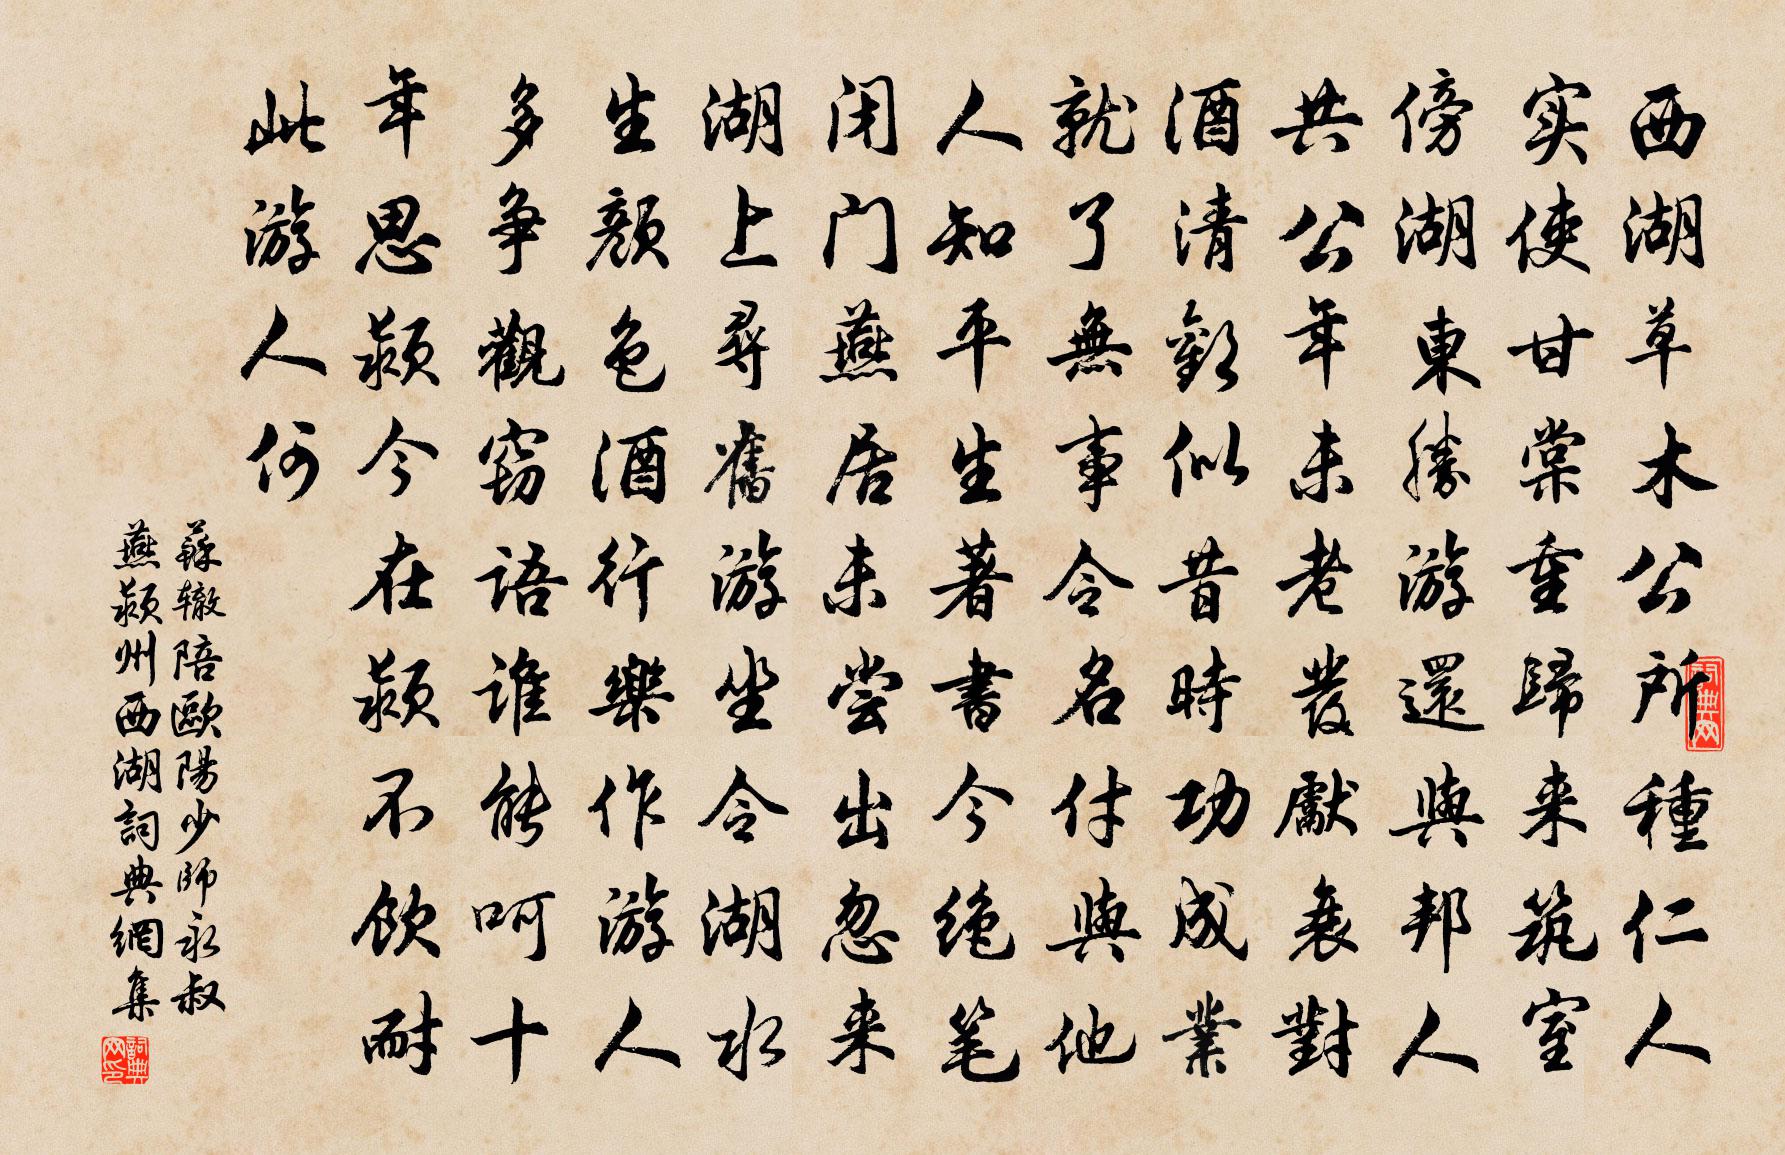 西湖草木公所種仁人
实使甘棠重歸来筑室
傍湖東勝游還與邦人
共公年未老發獻衰對
酒清歡似昔時功成業
就了無事令名付與他
人知平生著書今绝笔
闭门燕居未尝出忽来
湖上尋舊游坐令湖水
生颜色酒行樂作游人
多争觀窃語谁能呵十
年思颍今在颍不饮耐
此游人何
蘇辙陪歐陽少師永叔
燕颍州西湖詞典網集
词典网
詞典网印